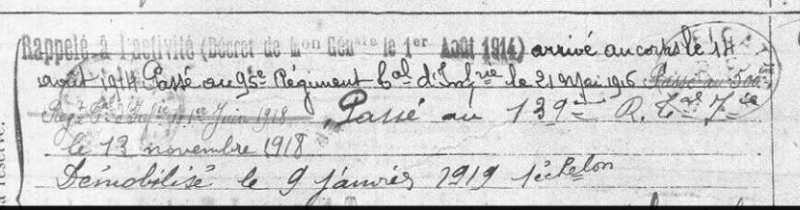 Rappelé à l'activité (Décret de Mon Génale le 1er Août 1914) arrivé au corps le 14
août 1914 Passé au 95e Régiment tal d'Infrie le 21 Mai 1916 Passé au
Regt tal d'Infie le 1er Juin 1918. Passé au 139e R. tal Ie
le 13 novembre 1918
Démobilisé le 9 janvier 1919 1échelon
réserve.